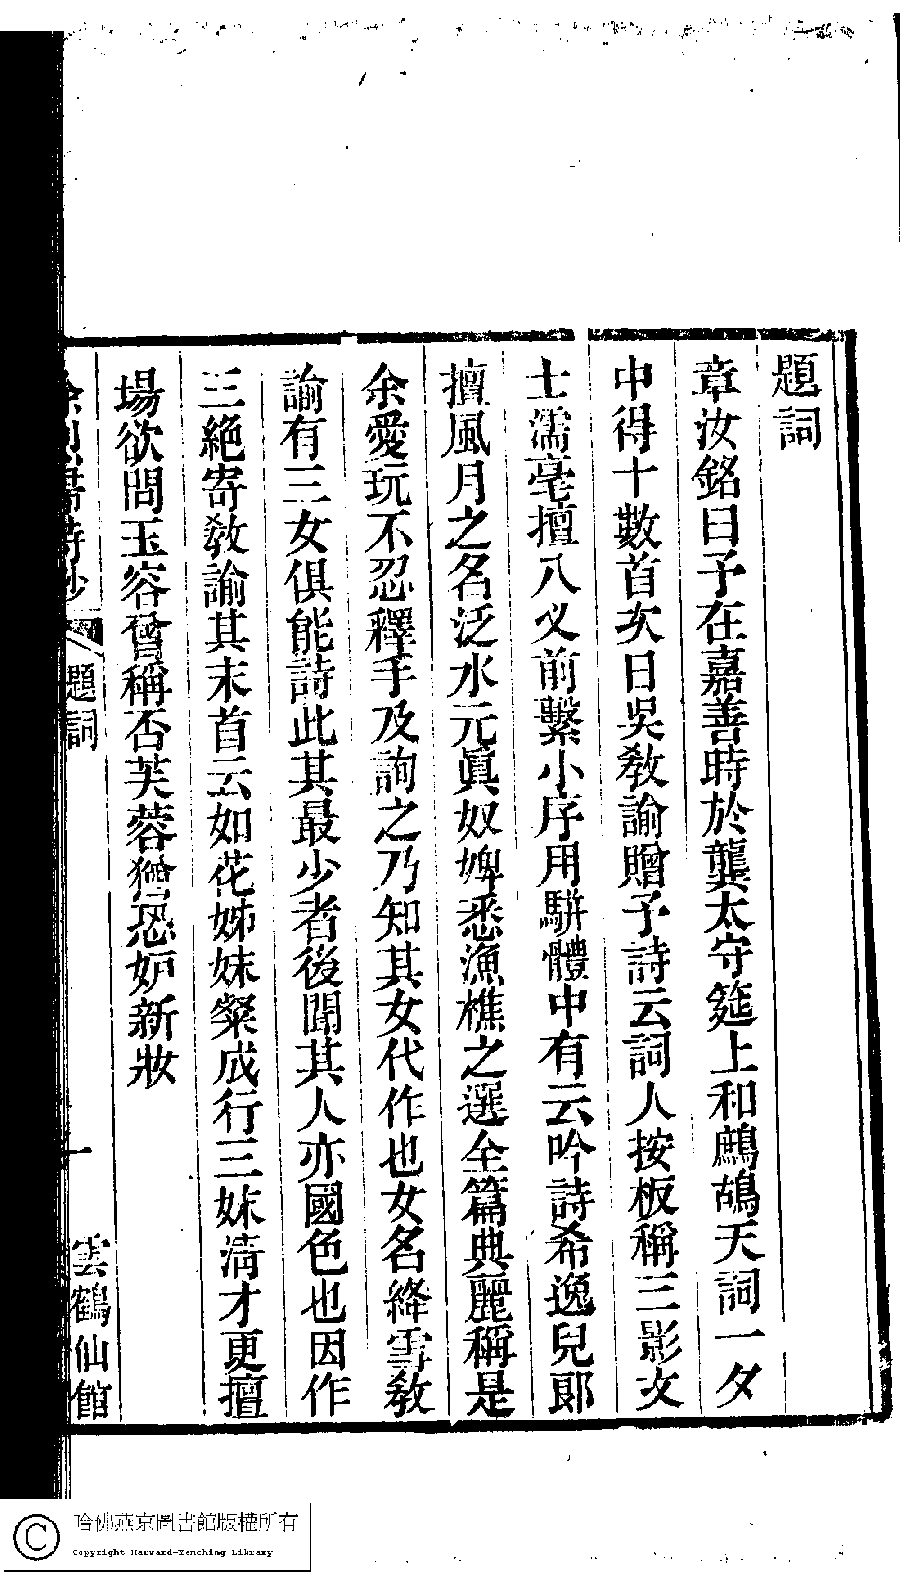 題詞
章汝銘曰予在嘉善時於龔太守筵上和鷓鴣天詞一夕
中得十數首次日吳敎諭贈予詩云詞人按板稱三影文
士濡毫擅八义前繫小序用駢體中有云吟詩希逸兒郞
擅風月之名泛水元眞奴婢悉漁樵之選全篇典麗稱是
余愛玩不忍釋手及詢之乃知其女代作也女名絳雪敎
諭有三女俱能詩此其最少者後聞其人亦國色也因作
三絕寄敎諭其末首云如花姊妹粲成行三妹淸才更擅
場欲問玉容曾稱否芙蓉猶恐妒新妝
詩鈔
題詞
一
雲鶴仙館
哈佛燕京圖書館版權所有
Copyright Harvard-Yenching Library